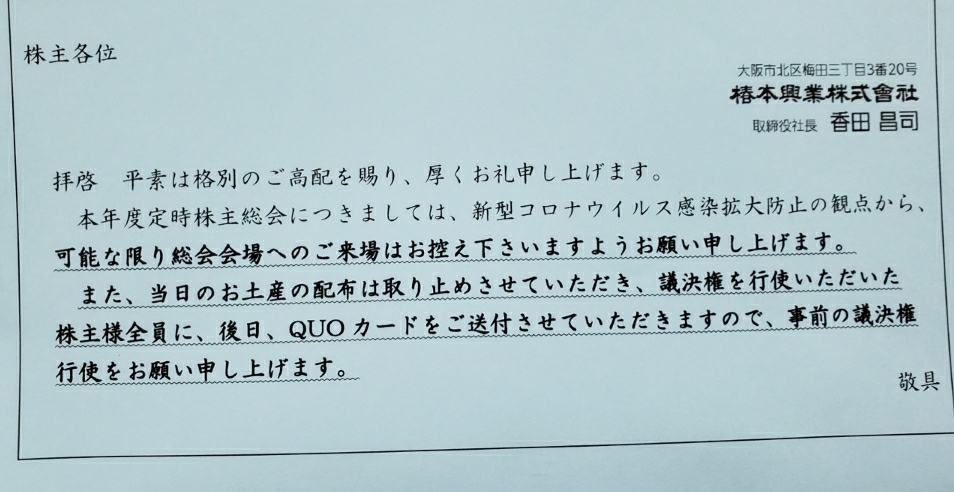 株主各位
大阪市北区梅田三丁目3番20号
椿本興業株式會社
取締役社長 香田 昌司
拝啓 平素は格別のご高配を賜り、厚くお礼申し上げます。
本年度定時株主総会につきましては、新型コロナウイルス感染拡大防止の観点から、
可能な限り総会会場へのご来場はお控え下さいますようお願い申し上げます。
また、当日のお土産の配布は取り止めさせていただき、議決権を行使いただいた
株主様全員に、後日、QUOカードをご送付させていただきますので、事前の議決権
行使をお願い申し上げます。
敬具